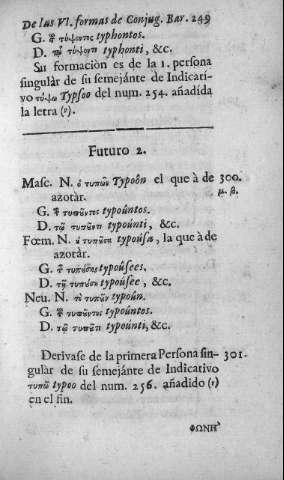 De las VI. formas de Conjug. Bar. 249
G. τύψοντος typhontos.
D. τῷ τύψοντι typhonti, &c.
Su formacion es de la 1. persona
singulàr de su semejánte de Indicati-
vo τύψω Typsoo del num. 254. añadida
la letra (ν).
Futuro 2.
Masc. N. ὁ τυπῶν Typoôn el que à de 300.
azotàr.
G. τυποῦντος typoúntos.
D. τῷ τυποῦντι typoúnti, &c.
Fœm. N. ἡ τυποῦσα typoúsa, la que à de
azotàr.
G. τυπούσης typoúsees.
D. τῇ τυπούσῃ typoúsee, &c.
Neu. N. τὸ τυποῦν typoún.
G. τυποῦντος typoúntos.
D. τῷ τυποῦντι typoúnti, &c.
Derivase de la primera Persona sin- 301.
gulàr de su semejánte de Indicativo
τυπῶ typoo del num. 256. añadido (ν)
en el fin.
ΦΩΝΗ